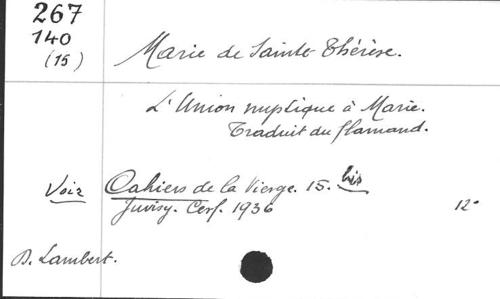 267
140
(15)
Marie de Sainte Thérèse.
L'Union mystique à Marie.
Traduit du flamand.
Voir Cahiers de la Vierge. 15. bis
Juvisy. Cerf. 1936 12°
D. Lambert.